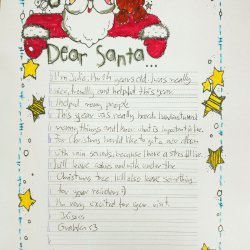 Dear Santa...
I'm Julia. I'm 14 years old. I was really
nice, friendly and helpful this year.
I helped many people.
This year was really hard. I understand
many things and know what is important in life.
For Christmas I would like to get a
with rain sounds, because I have a stressful life.
I will leave cookies and milk under the
Christmas tree. I will also leave something
for your reindeers :)
I'm very excited for your visit.
Kisses